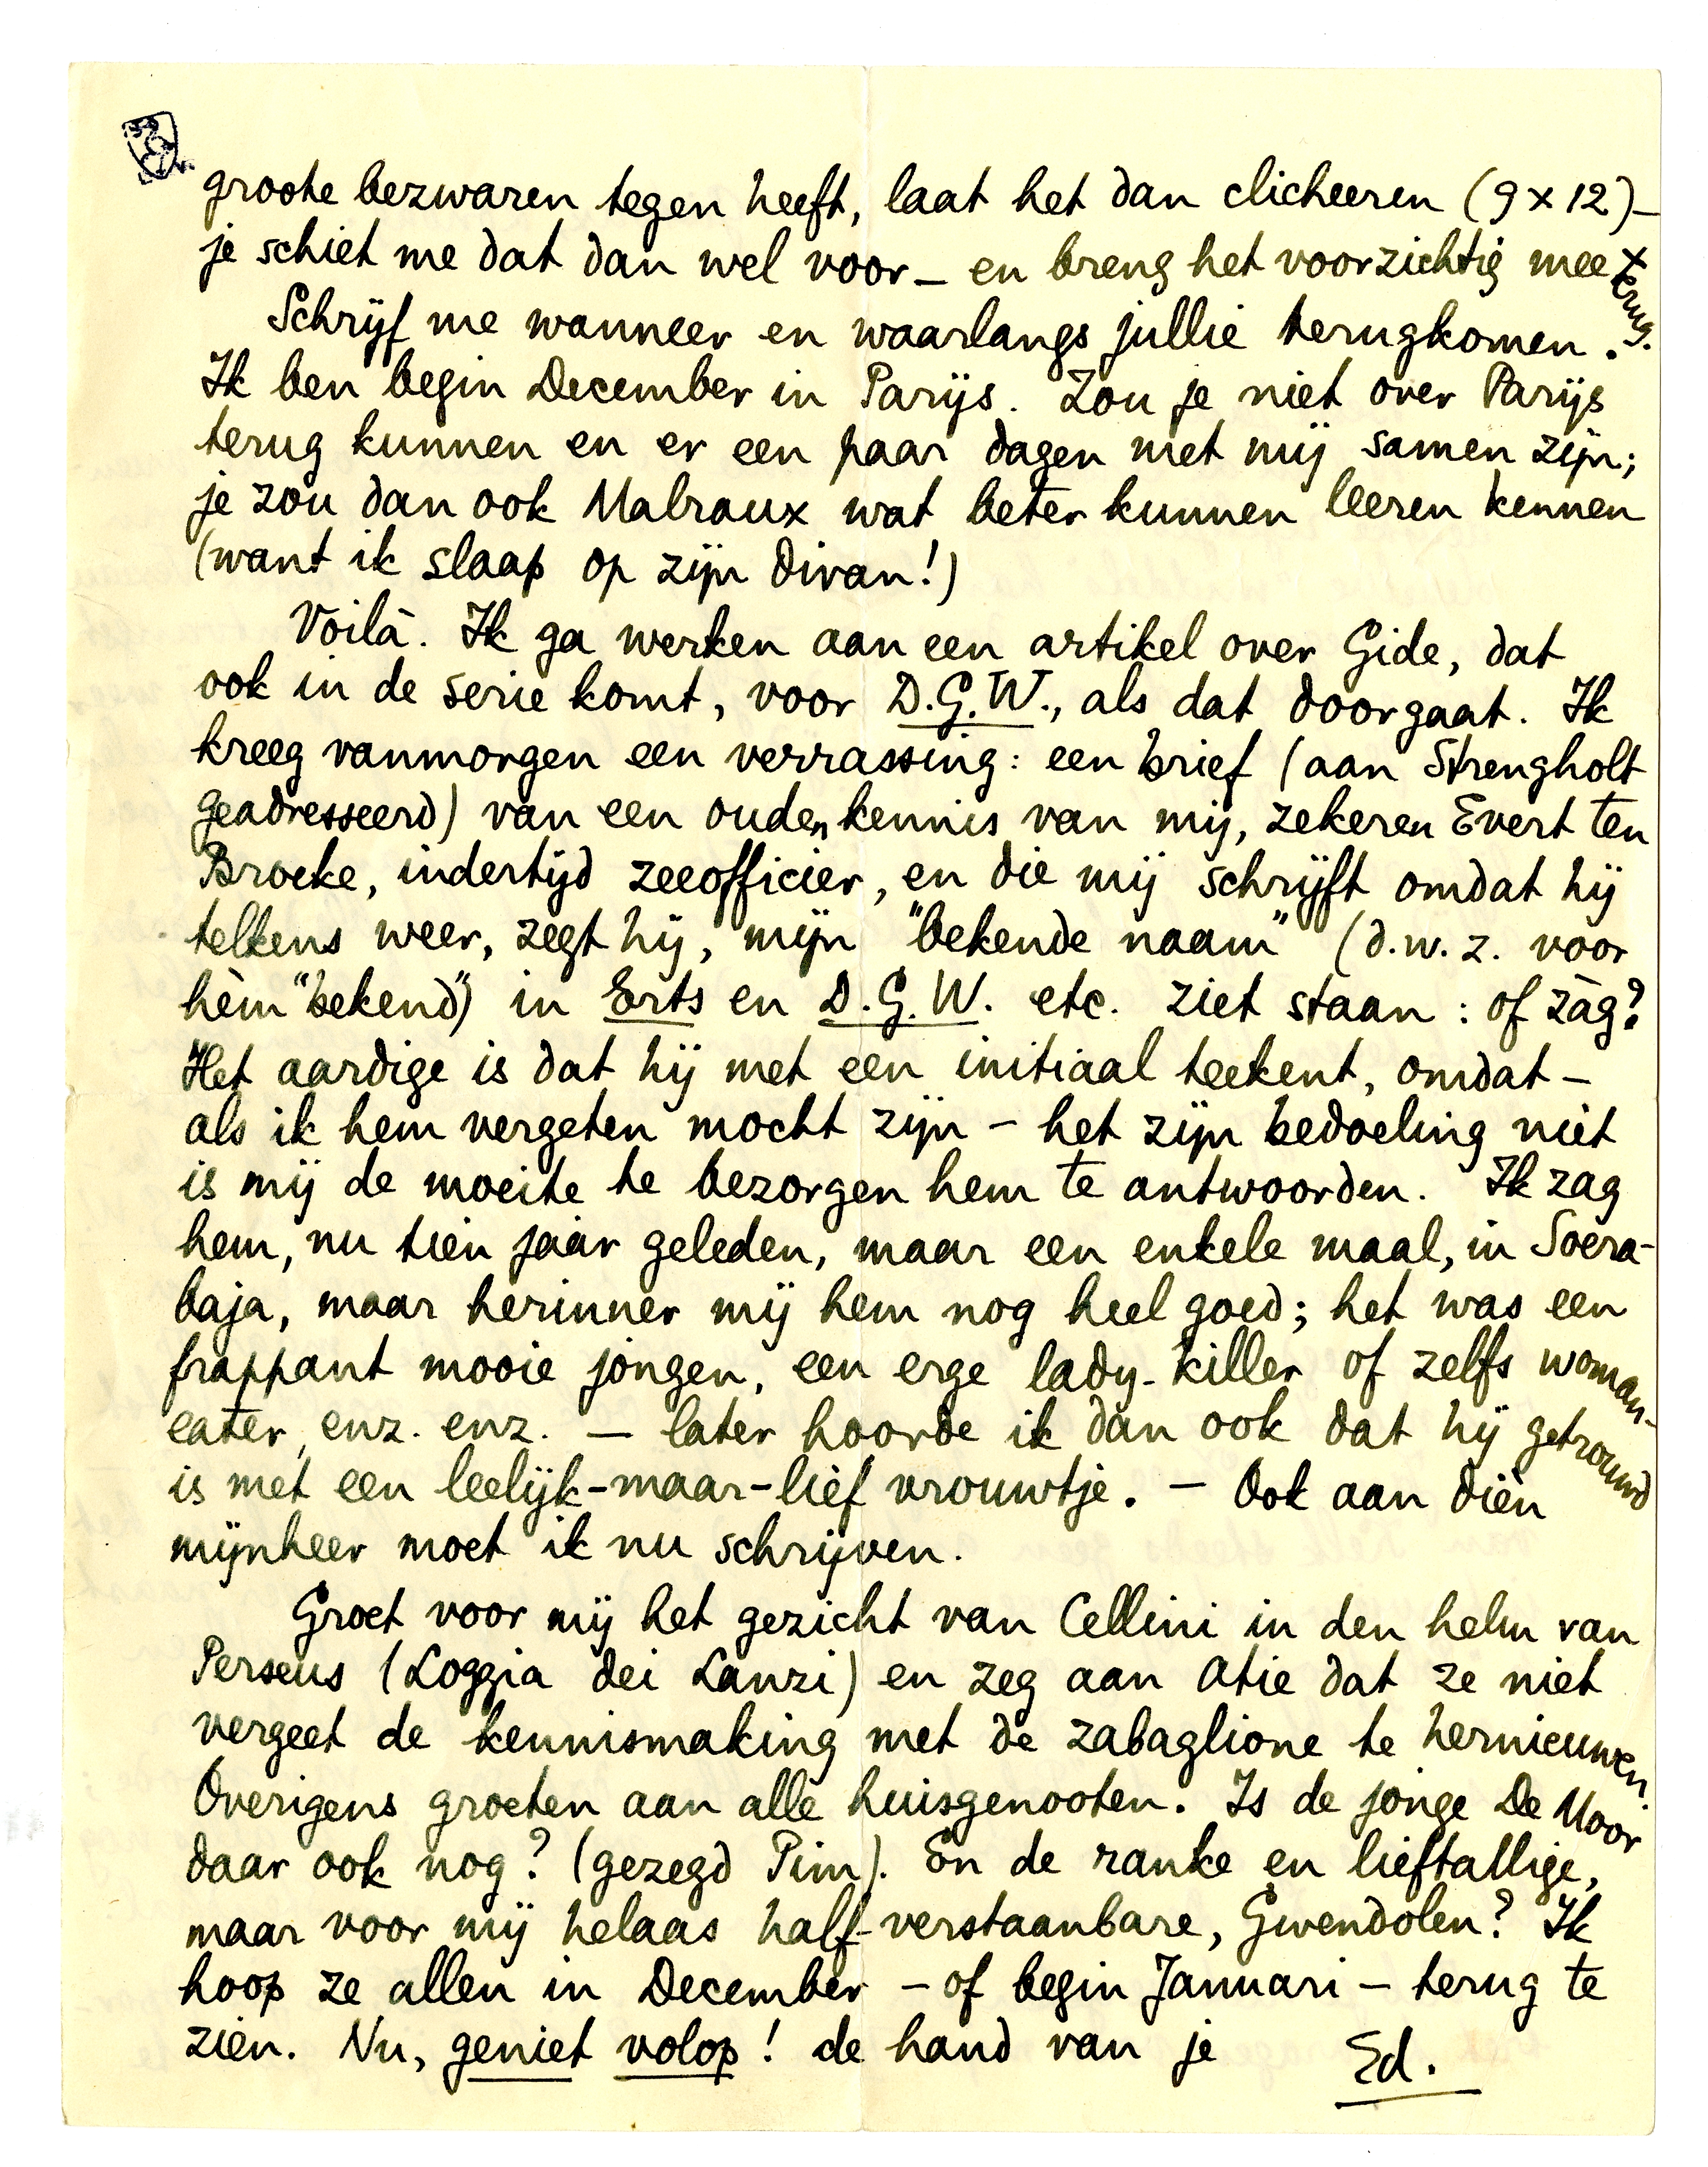 groote bezwaren tegen heeft, laat het dan clicheeren (9 x 12) –
je schiet me dat dan wel voor – en breng het voorzichtig mee terug.
Schrijf me wanneer en waarlangs jullie terugkomen.
Ik ben begin December in Parijs. Zou je niet over Parijs
terug kunnen en er een paar dagen met mij samen zijn;
je zou dan ook Malraux wat beter kunnen leeren kennen
(want ik slaap op zijn divan!)
Voilà. Ik ga werken aan een artikel over Gide, dat
ook in de serie komt, voor D.G.W., als dat doorgaat. Ik
kreeg vanmorgen een verrassing: een brief (aan Strengholt
geadresseerd) van een ouden kennis van mij, zekeren Evert ten
Broeke, indertijd zeeofficier, en die mij schrijft omdat hij
telkens weer, zegt hij, mijn "bekende naam" (d.w.z. voor
hèm "bekend") in Erts en D.G.W. etc. ziet staan: of zàg?
Het aardige is dat hij met een initiaal teekent, omdat –
als ik hem vergeten mocht zijn – het zijn bedoeling niet
is mij de moeite te bezorgen hem te antwoorden. Ik zag
hem, nu tien jaar geleden, maar een enkele maal, in Soera-
baja, maar herinner mij hem nog heel goed; het was een
frappant mooie jongen, een erge lady-killer of zelfs woman-
eater, enz. enz. – later hoorde ik dan ook dat hij getrouwd
is met een leelijk-maar-lief vrouwtje. – Ook aan dièn
mijnheer moet ik nu schrijven.
Groet voor mij het gezicht van Cellini in den helm van
Perseus (Loggia dei Lanzi) en zeg aan Atie dat ze niet
vergeet de kennismaking met de zabaglione te hernieuwen.
Overigens groeten aan alle huisgenooten. Is de jonge De Moor
daar ook nog? (gezegd Pim). En de ranke en lieftallige,
maar voor mij helaas half-verstaanbare, Gwendolen? Ik
hoop ze allen in December – of begin Januari – terug te
zien. Nu, geniet volop! de hand van je Ed.